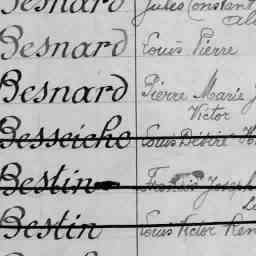 Besnard Jules Constant
Besnard Louis Pierre
Besnard Pierre Marie J
Victor
Besseiche Louis Désiré
Bestin Francis Joseph
Bestin Louis Victor Ren